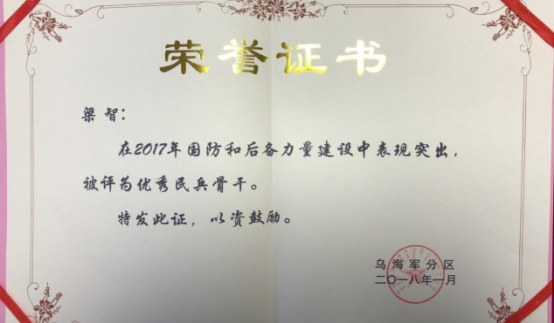 荣誉证书
梁智：
在2017年国防和后备力量建设中表现突出，
被评为优秀民兵骨干。
特发此证，以资鼓励。
乌海军分区
二〇一八年一月